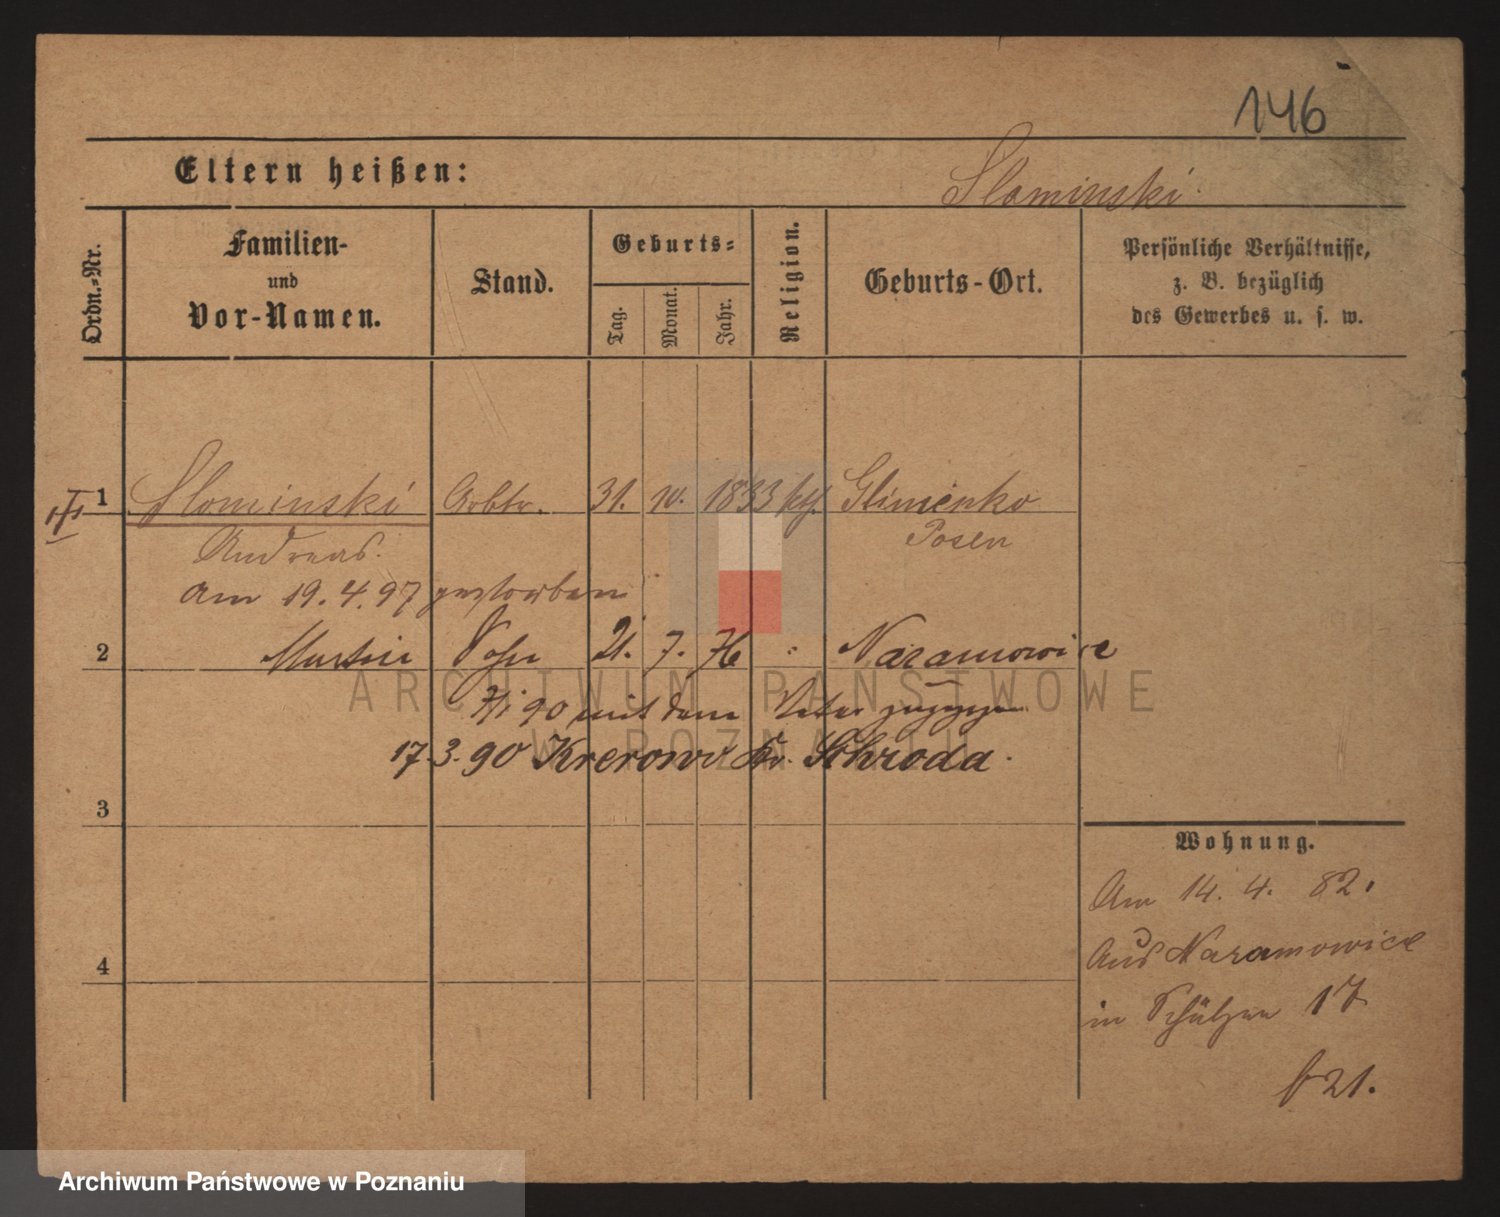 146
Eltern heißen:
Slominski.
Ordn.-Nr.
Familien-
und
Vor-Namen.
Stand.
Geburts-
Tag.
Monat.
Jahr.
Religion.
Geburts-Ort.
Persönliche Verhältnisse,
z. B. bezüglich
des Gewerbes u. s. w.
1 Slominski Arbtr. 31. 10. 1833 kth. Glinienko
Andreas. Posen
Am 19.4.97 gestorben
2 Martin Sohn 21. 7. 76 " Naramowice
90 mit dem Vater
17.3.90 Krerowo Kr. Schroda.
3
4
Wohnung.
Am 14. 4. 82.
Aus Naramowice
in Schützen 17
b 21.
ARCHIWUM PAŃSTWOWE
W POZNANIU
Archiwum Państwowe w Poznaniu